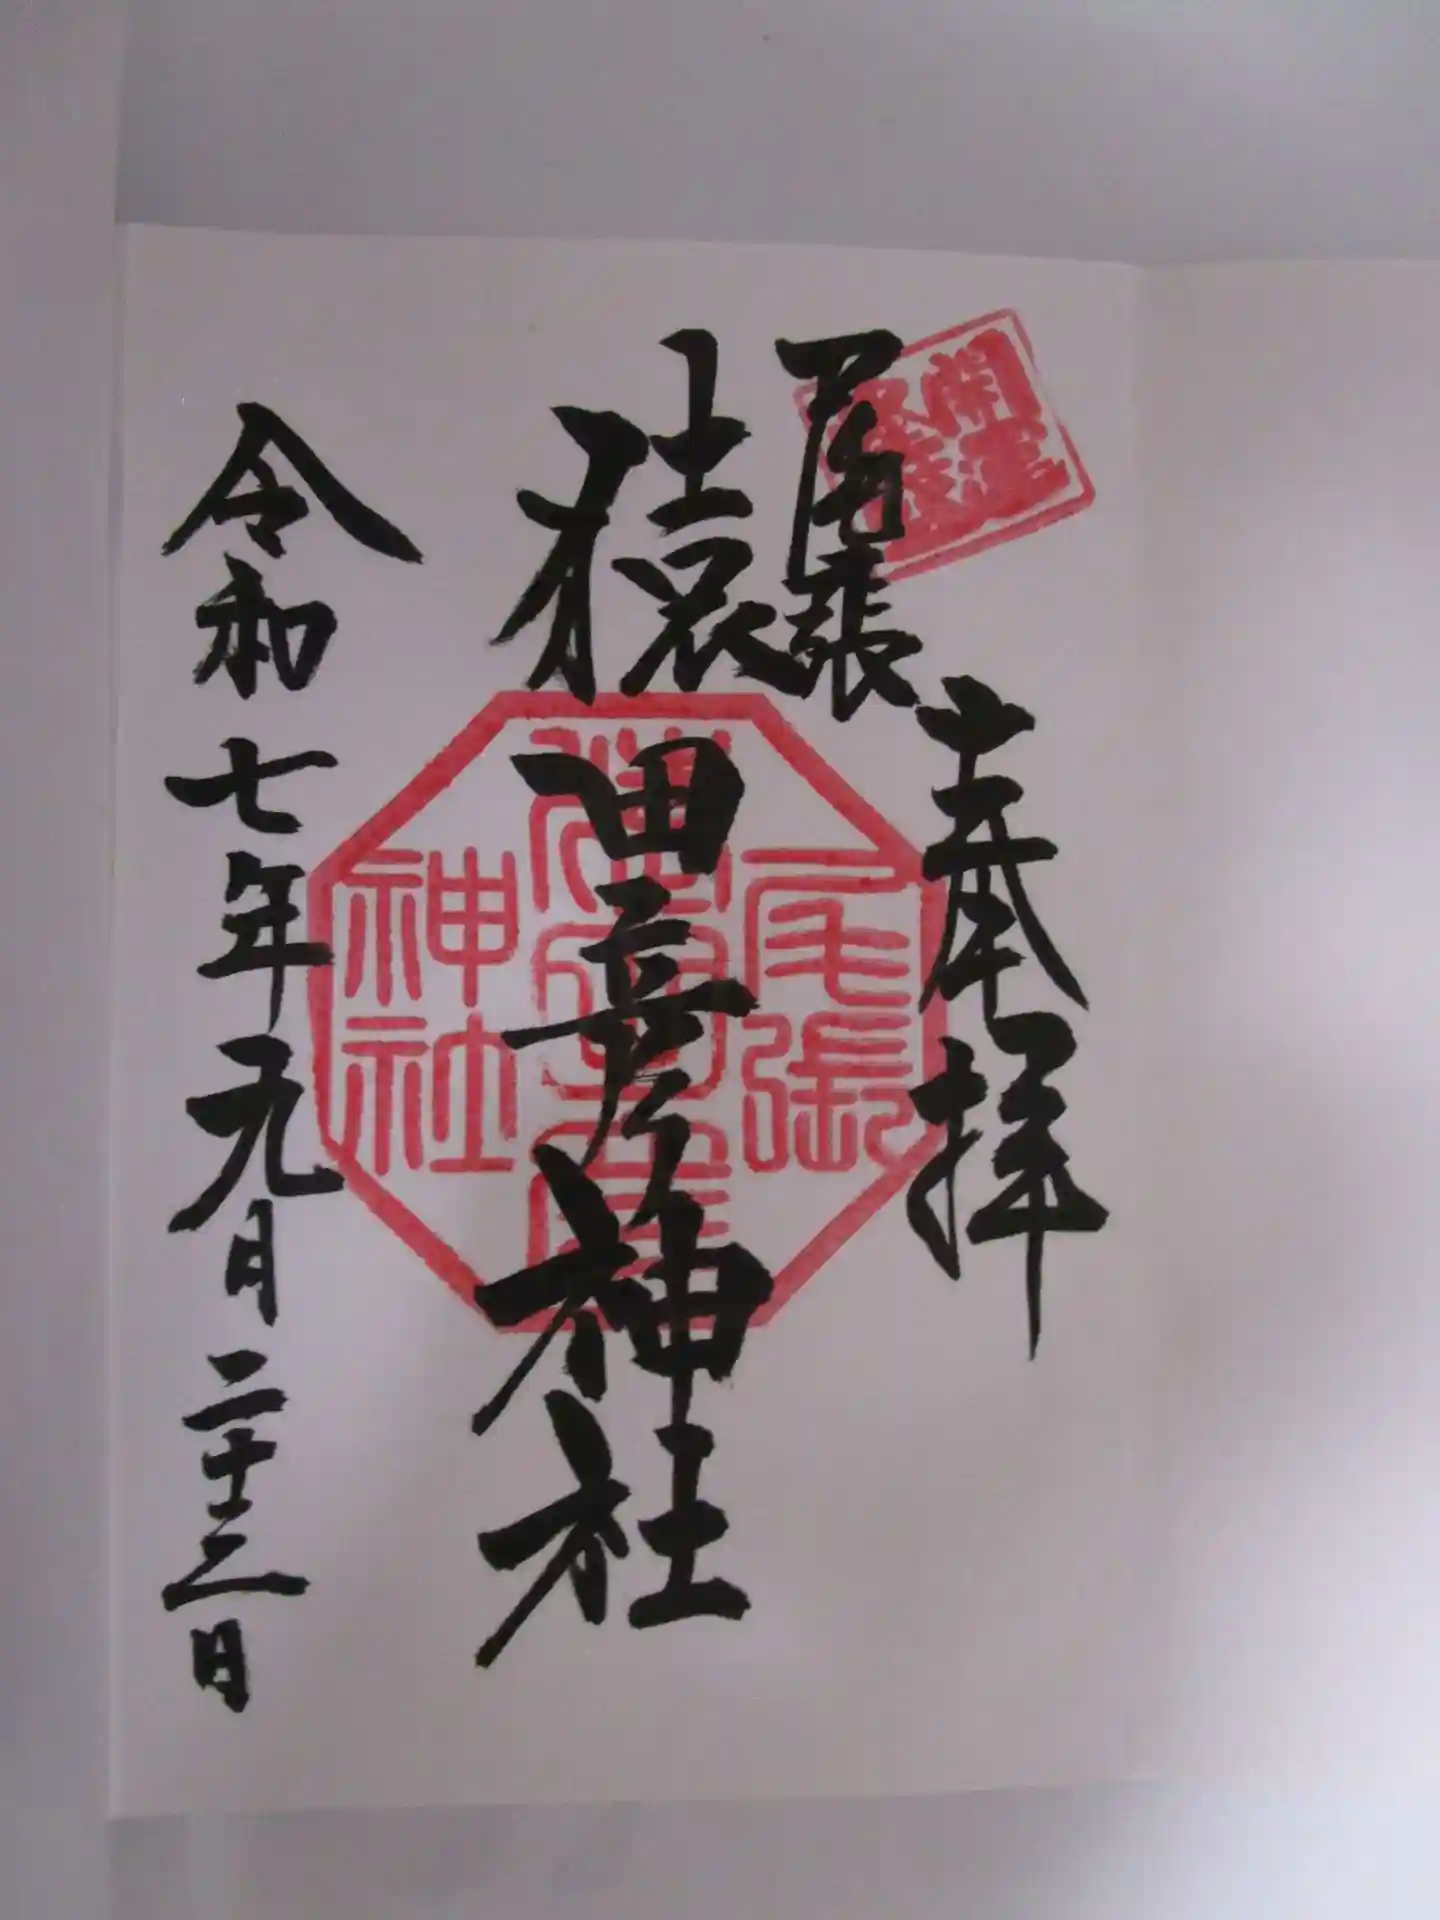 奉拝
尾張
猿田彦神社
令和七年元月二十三日
開運
尾張
猿田彦
神社